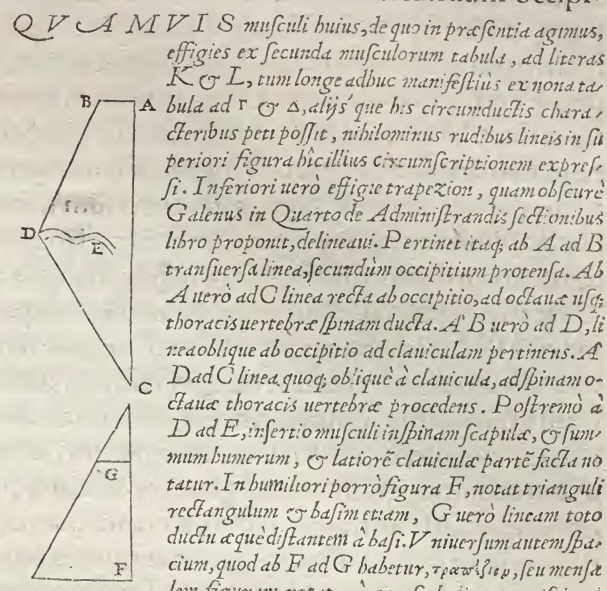 QVAMVIS musculi huius, de quo in præsentia agimus,
effigies ex secunda musculorum tabula, ad literas
K & L, tum longe adhuc manifestiùs ex nona ta⸗
bula ad Γ & Δ, alijs'que his circumductis chara⸗
cteribus peti possit, nihilominus rudibus lineis in su
periori figura hîc illius circumscriptionem expres⸗
si. Inferiori uerò effigie trapezion, quam obscurè
Galenus in Quarto de Administrandis sectionibus
libro proponit, delineaui. Pertinet itaq; ab A ad B
transuersa linea, secundùm occipitium protensa. Ab
A uerò ad C linea recta ab occipitio, ad octauæ usq;
thoracis uertebræ spinam ducta. A' B uerò ad D, li
nea oblique ab occipitio ad clauiculam pertinens. A'
D ad C linea quoq; obliquè à clauicula, ad spinam o⸗
ctauæ thoracis uertebræ procedens. Postremò à
D ad E, insertio musculi in spinam scapulæ, & sum⸗
mum humerum, & latiorē clauiculæ partē facta no
tatur. In humiliori porrò figura F, notat trianguli
rectangulum & basim etiam, G uerò lineam toto
ductu æquè distantem à basi. Vniuersum autem spa⸗
cium, quod ab F ad G habetur, τραπέζιον, seu mensæ
B A
D
E
C
G
F